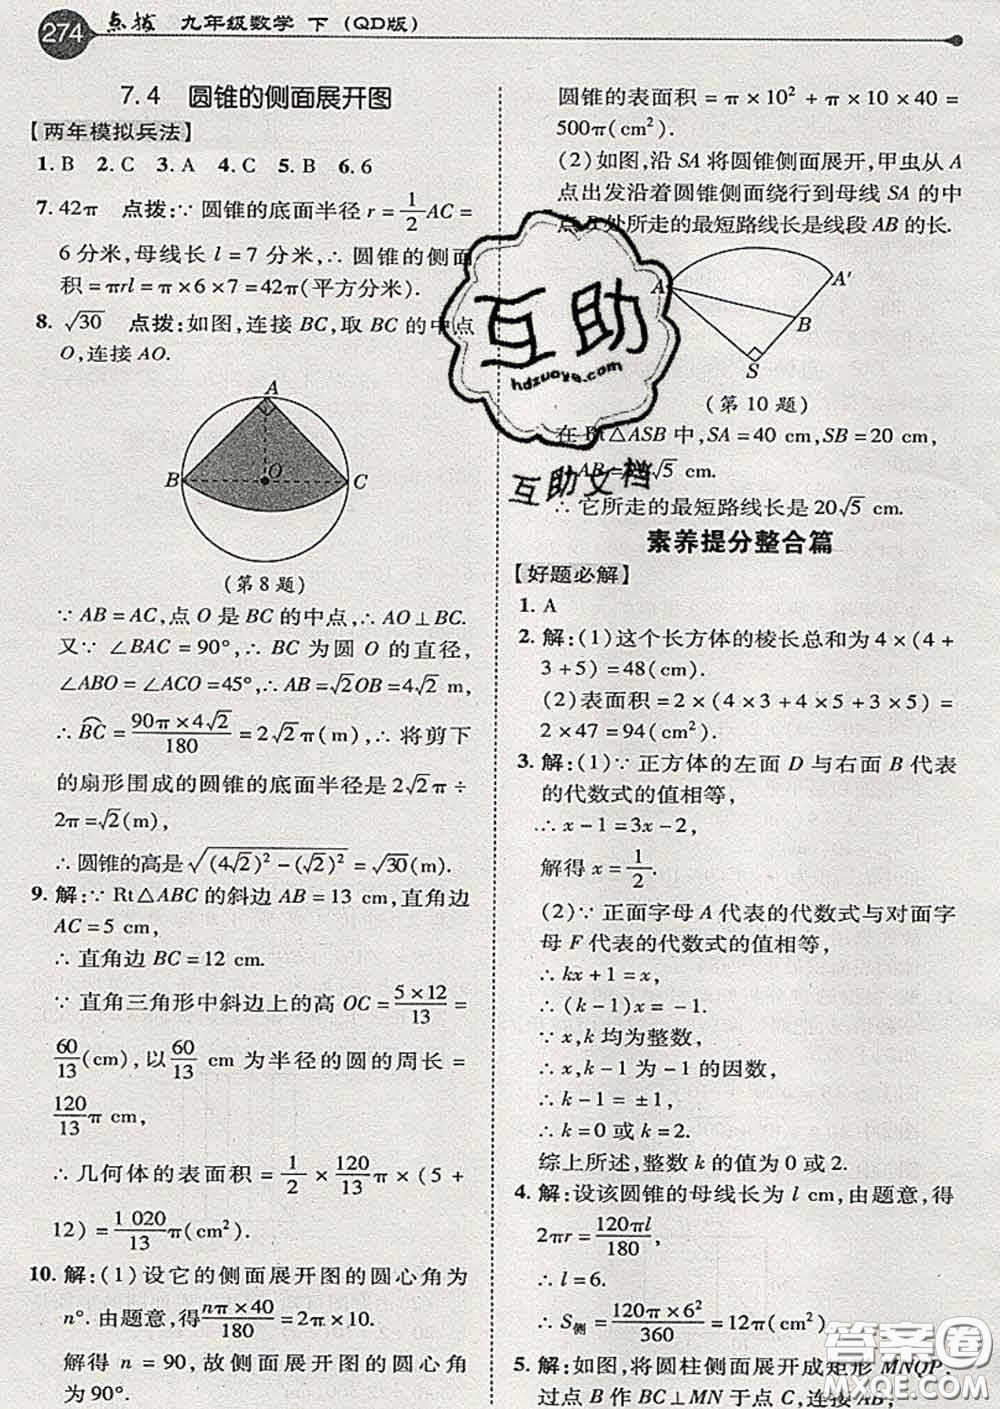 274 点拨 九年级数学 下 (QD版)
7.4 圆锥的侧面展开图
【两年模拟兵法】
1. B 2. C 3. A 4. C 5. B 6. 6
7. 42π 点拨:∵ 圆锥的底面半径 r = 1/2 AC =
6 分米,母线长 l = 7 分米,∴ 圆锥的侧面
积 = πrl = π×6×7 = 42π(平方分米).
8. √30 点拨:如图,连接 BC,取 BC 的中点
O,连接 AO.
A
B
O
C
(第 8 题)
∵ AB = AC,点 O 是 BC 的中点,∴ AO⊥BC.
又∵ ∠BAC = 90°,∴ BC 为圆 O 的直径,
∠ABO = ∠ACO = 45°,∴ AB = √2OB = 4√2 m,
∴ B͡C = 90π×4√2/180 = 2√2π(m),∴ 将剪下
的扇形围成的圆锥的底面半径是 2√2π÷
2π = √2(m),
∴ 圆锥的高是 √((4√2)² − (√2)²) = √30(m).
9. 解:∵ Rt△ABC 的斜边 AB = 13 cm,直角边
AC = 5 cm,
∴ 直角边 BC = 12 cm.
∵ 直角三角形中斜边上的高 OC = 5×12/13 =
60/13(cm),以 60/13 cm 为半径的圆的周长 =
120/13 π cm,
∴ 几何体的表面积 = 1/2 × 120/13 π × (5 +
12) = 1 020/13 π(cm²).
10. 解:(1)设它的侧面展开图的圆心角为
n°. 由题意,得 nπ×40/180 = 2π×10.
解得 n = 90,故侧面展开图的圆心角
为 90°.
圆锥的表面积 = π×10² + π×10×40 =
500π(cm²).
(2)如图,沿 SA 将圆锥侧面展开,甲虫从 A
点出发沿着圆锥侧面绕行到母线 SA 的中
点 B 处所走的最短路线长是线段 AB 的长.
A
A′
B
S
(第 10 题)
在 Rt△ASB 中,SA = 40 cm,SB = 20 cm,
AB = 20√5 cm.
∴ 它所走的最短路线长是 20√5 cm.
素养提分整合篇
【好题必解】
1. A
2. 解:(1)这个长方体的棱长总和为 4×(4+
3+5) = 48(cm).
(2)表面积 = 2×(4×3+4×5+3×5) =
2×47 = 94(cm²).
3. 解:(1)∵ 正方体的左面 D 与右面 B 代表
的代数式的值相等,
∴ x−1 = 3x−2,
解得 x = 1/2.
(2)∵ 正面字母 A 代表的代数式与对面字
母 F 代表的代数式的值相等,
∴ kx+1 = x,
∴ (k−1)x = −1.
∵ x,k 均为整数,
∴ k−1 为 −1 的因数,
∴ k−1 = ±1,
∴ k = 0 或 k = 2.
综上所述,整数 k 的值为 0 或 2.
4. 解:设该圆锥的母线长为 l cm,由题意,得
2πr = 120πl/180,
∴ l = 6.
∴ S侧 = 120π×6²/360 = 12π(cm²).
5. 解:如图,将圆柱侧面展开成矩形 MNQP.
过点 B 作 BC⊥MN 于点 C,连接 AB,
互助
hdzuoye.com
互助文档
答案圈
MXQE.COM